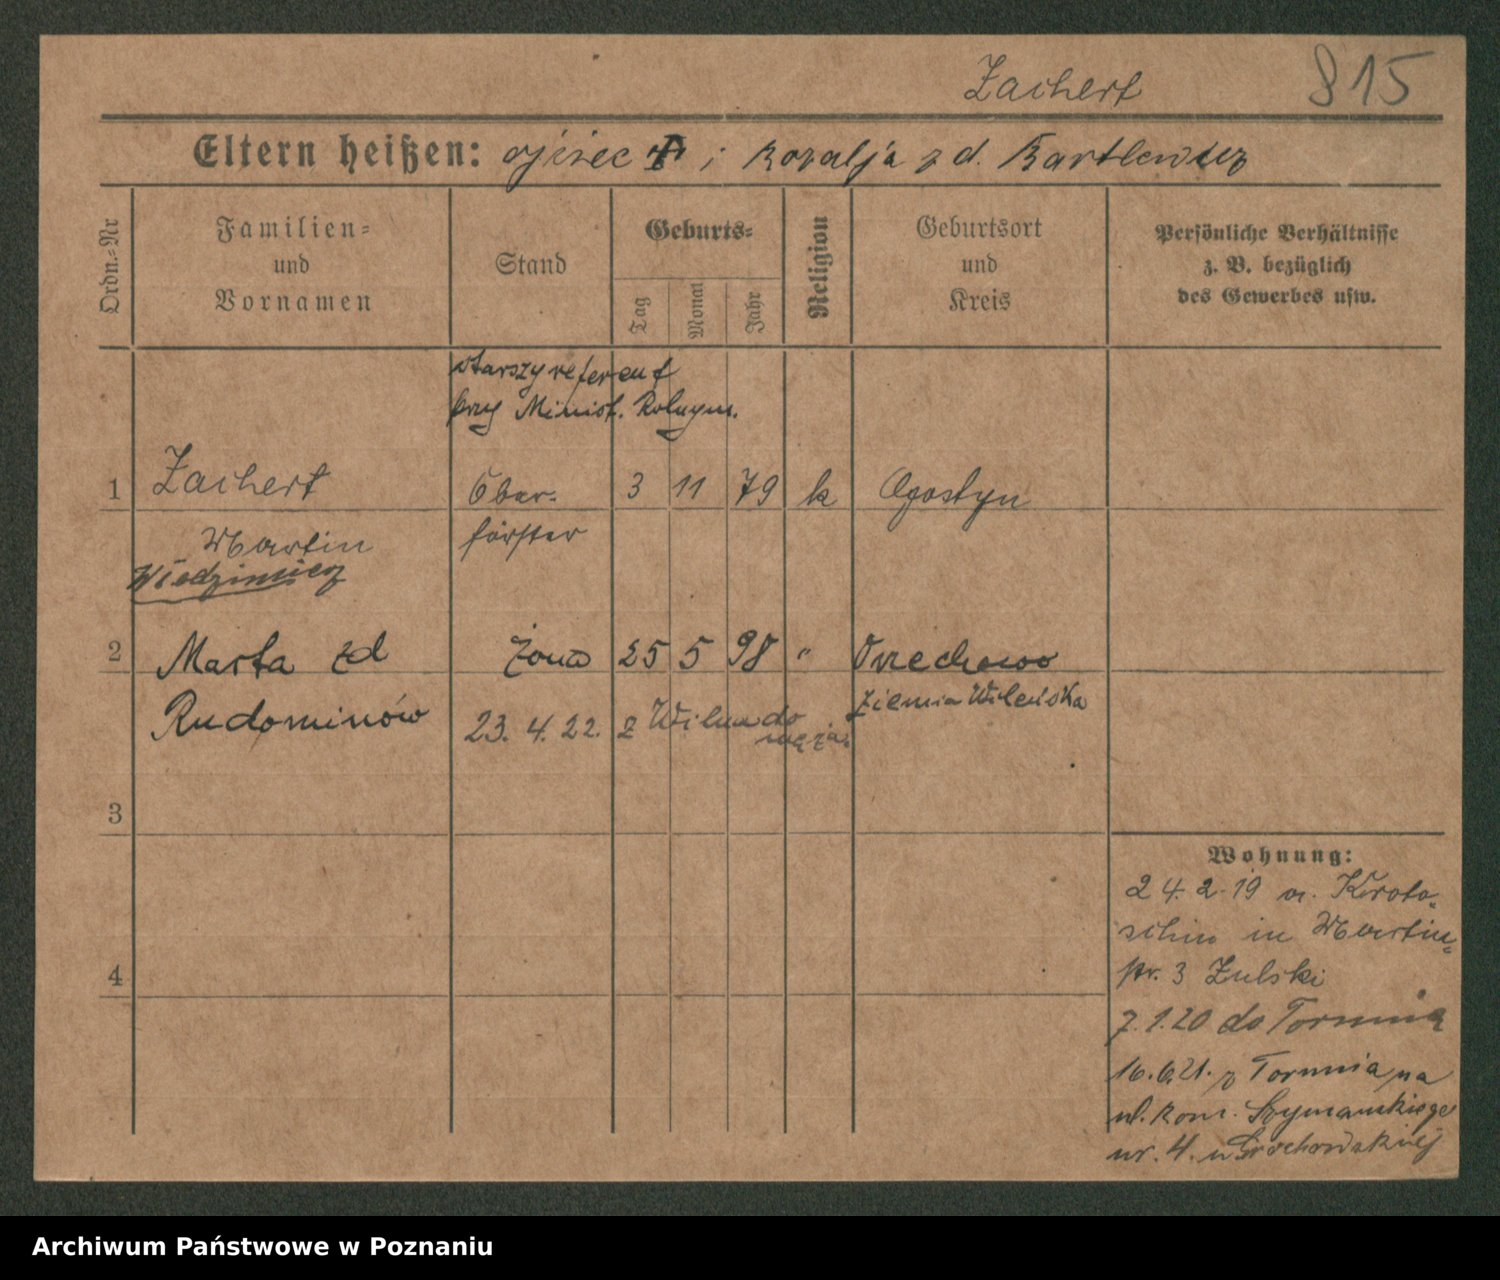 Zachert 815
Eltern heißen: ojciec † i Rozalja z d. Bartlewicz
Ordn.-Nr
Familien-
und
Vornamen
Stand
Geburts-
Tag
Monat
Jahr
Religion
Geburtsort
und
Kreis
Persönliche Verhältnisse
z. B. bezüglich
des Gewerbes usw.
starszy referent
przy Minist. Rolnym.
1 Zachert Ober- 3 11 79 k Gostyn
Martin förster
Włodzimierz
2 Marta zd żona 25 5 98 " Orzechowo
Rudominów 23. 4. 22. z Wilna do męża. ziemia Wileńska
3
4
Wohnung:
24. 2. 19 a. Kroto-
schin in Martin-
str. 3 Zulski
7. 1. 20 do Torunia
16. 6. 21. z Torunia na
ul. Konr. Szymańskiego
nr. 4. u Grochowskiej
Archiwum Państwowe w Poznaniu